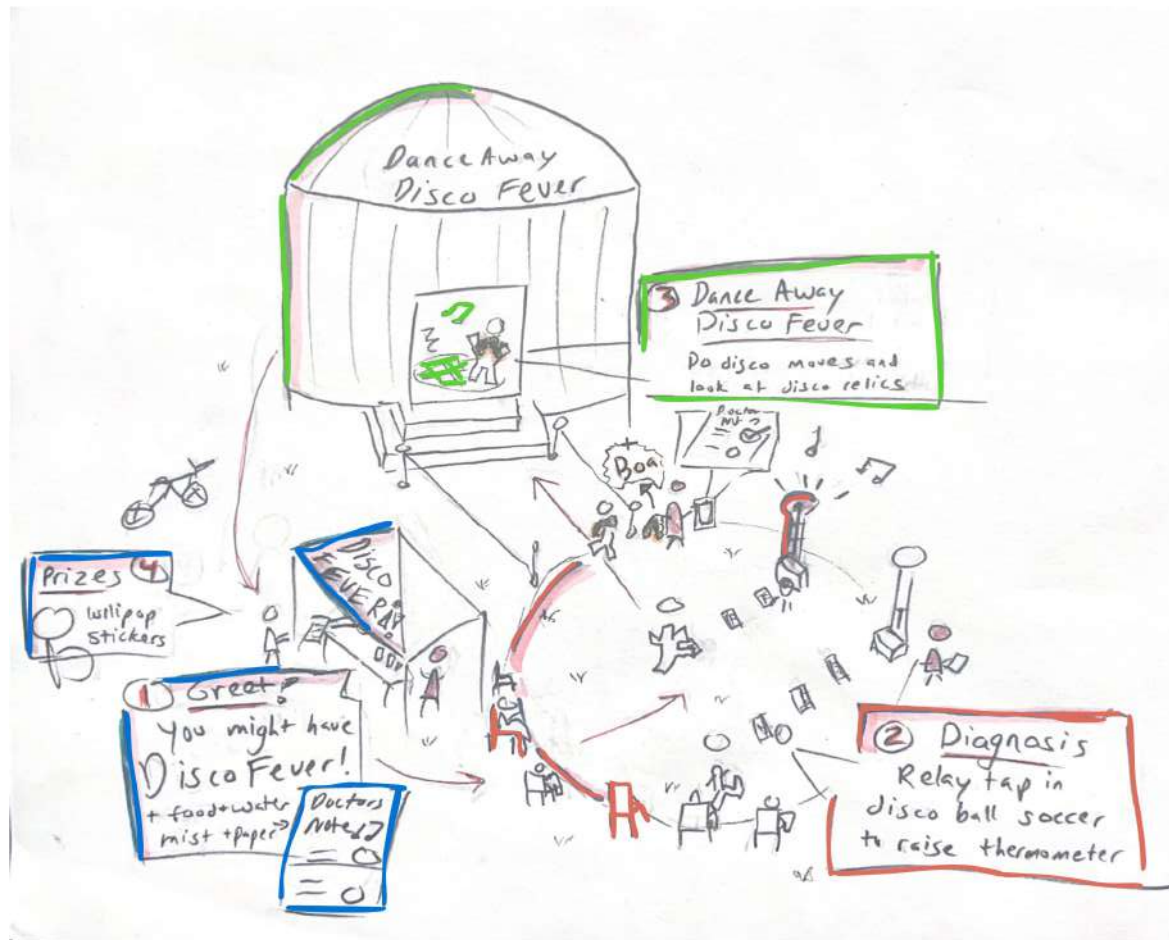 Dance Away
Disco Fever
3 Dance Away
Disco Fever
Do disco moves and
look at disco relics
Doctor
Prizes 4
lollipop
stickers
DISCO
FEVER
1 Greet!
You might have
Disco Fever!
+ food + water
mist + paper →
Doctors
Note
2 Diagnosis
Relay tap in
disco ball soccer
to raise thermometer